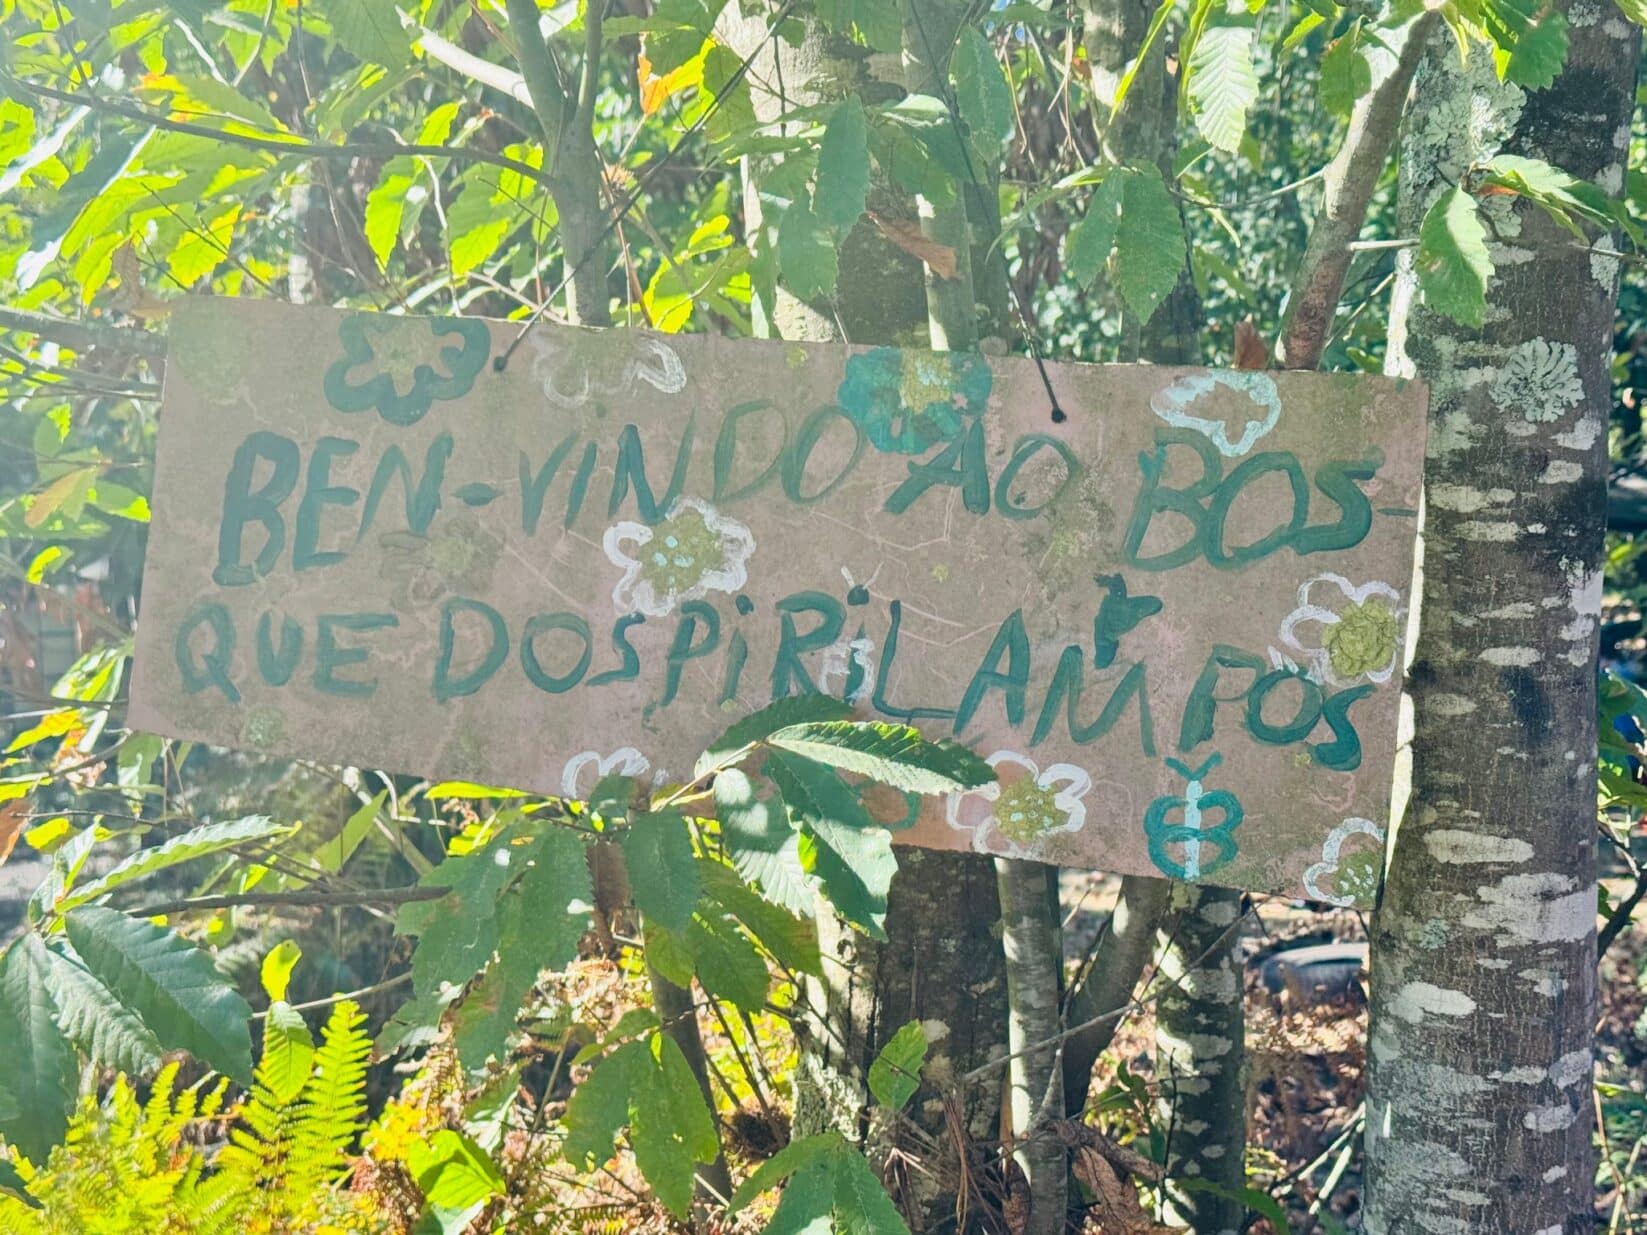 BEN-VINDO AO BOS-
QUE DOS PiRiLAMPOS